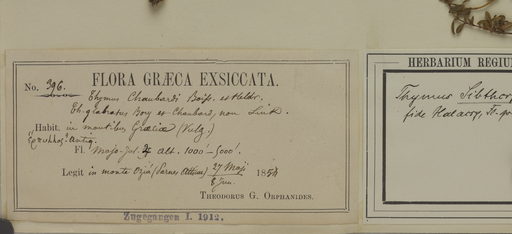 FLORA GRÆCA EXSICCATA.
No. 396.
Thymus Chaubardi Boiss. et Heldr.
Th. glabratus Bory et Chaubard, non Link
Habit. in montibus Græciæ (Vulg.)
Fl. Majo-Jul. ♃ Alt. 1000'-5000'.
Legit in monte Ozia (Parnes Atticae) 27 Maji 1854
8 Jun.
THEODORUS G. ORPHANIDES.
Zugegangen I. 1912.
HERBARIUM REGIU
Thymus Sibthor
fide Halacsy,